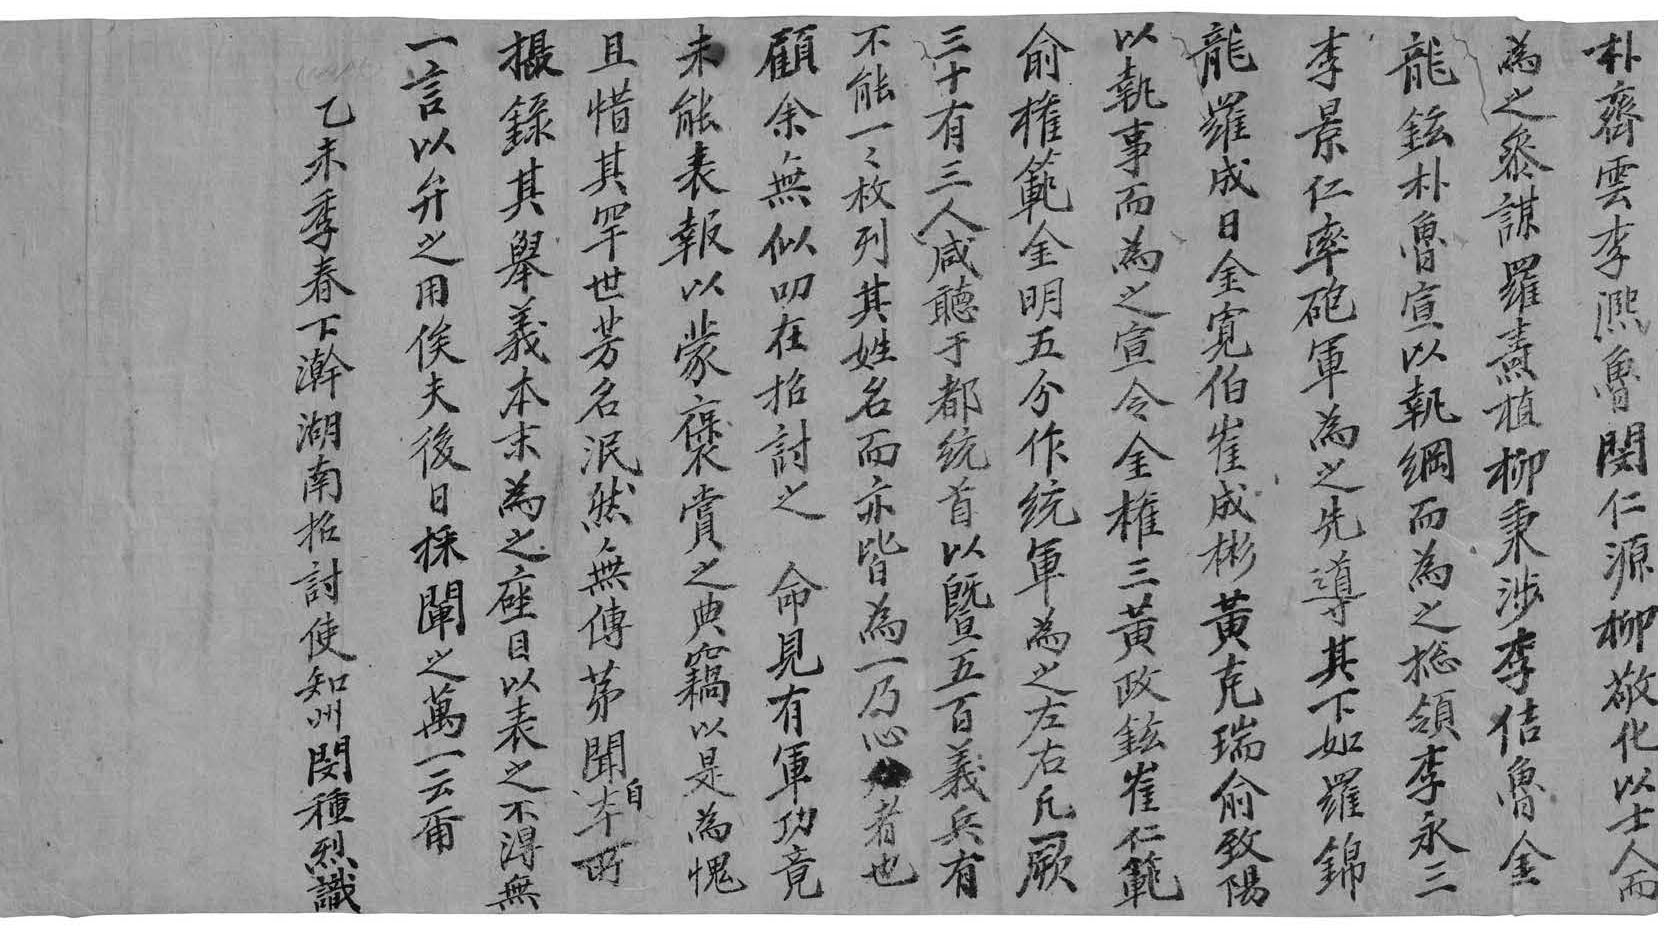 朴齊雲李熙魯閔仁源柳敬化以士人而
為之參謀羅燾植柳秉涉李佶魯金
龍鉉朴魯宣以執綱而為之捴領李永三
李景仁率砲軍為之先導其下如羅錦
龍羅成日金寬伯崔成彬黃克瑞俞致陽
以執事而為之宣令金權三黃政鉉崔仁範
俞權範金明五分作統軍為之左右凡厥
三十有三人咸聽于都統首以曁五百義兵有
不能一〻枚列其姓名而亦皆為一乃心者也
顧余無似叨在招討之 命見有軍功竟
未能表報以蒙褒賞之典竊以是為愧
且惜其罕世芳名泯然無傳茅聞自李所
撮錄其舉義本末為之座目以表之不淂無
一言以弁之用俟夫後日採闡之萬一云爾
乙未季春下澣湖南招討使知州閔種烈識